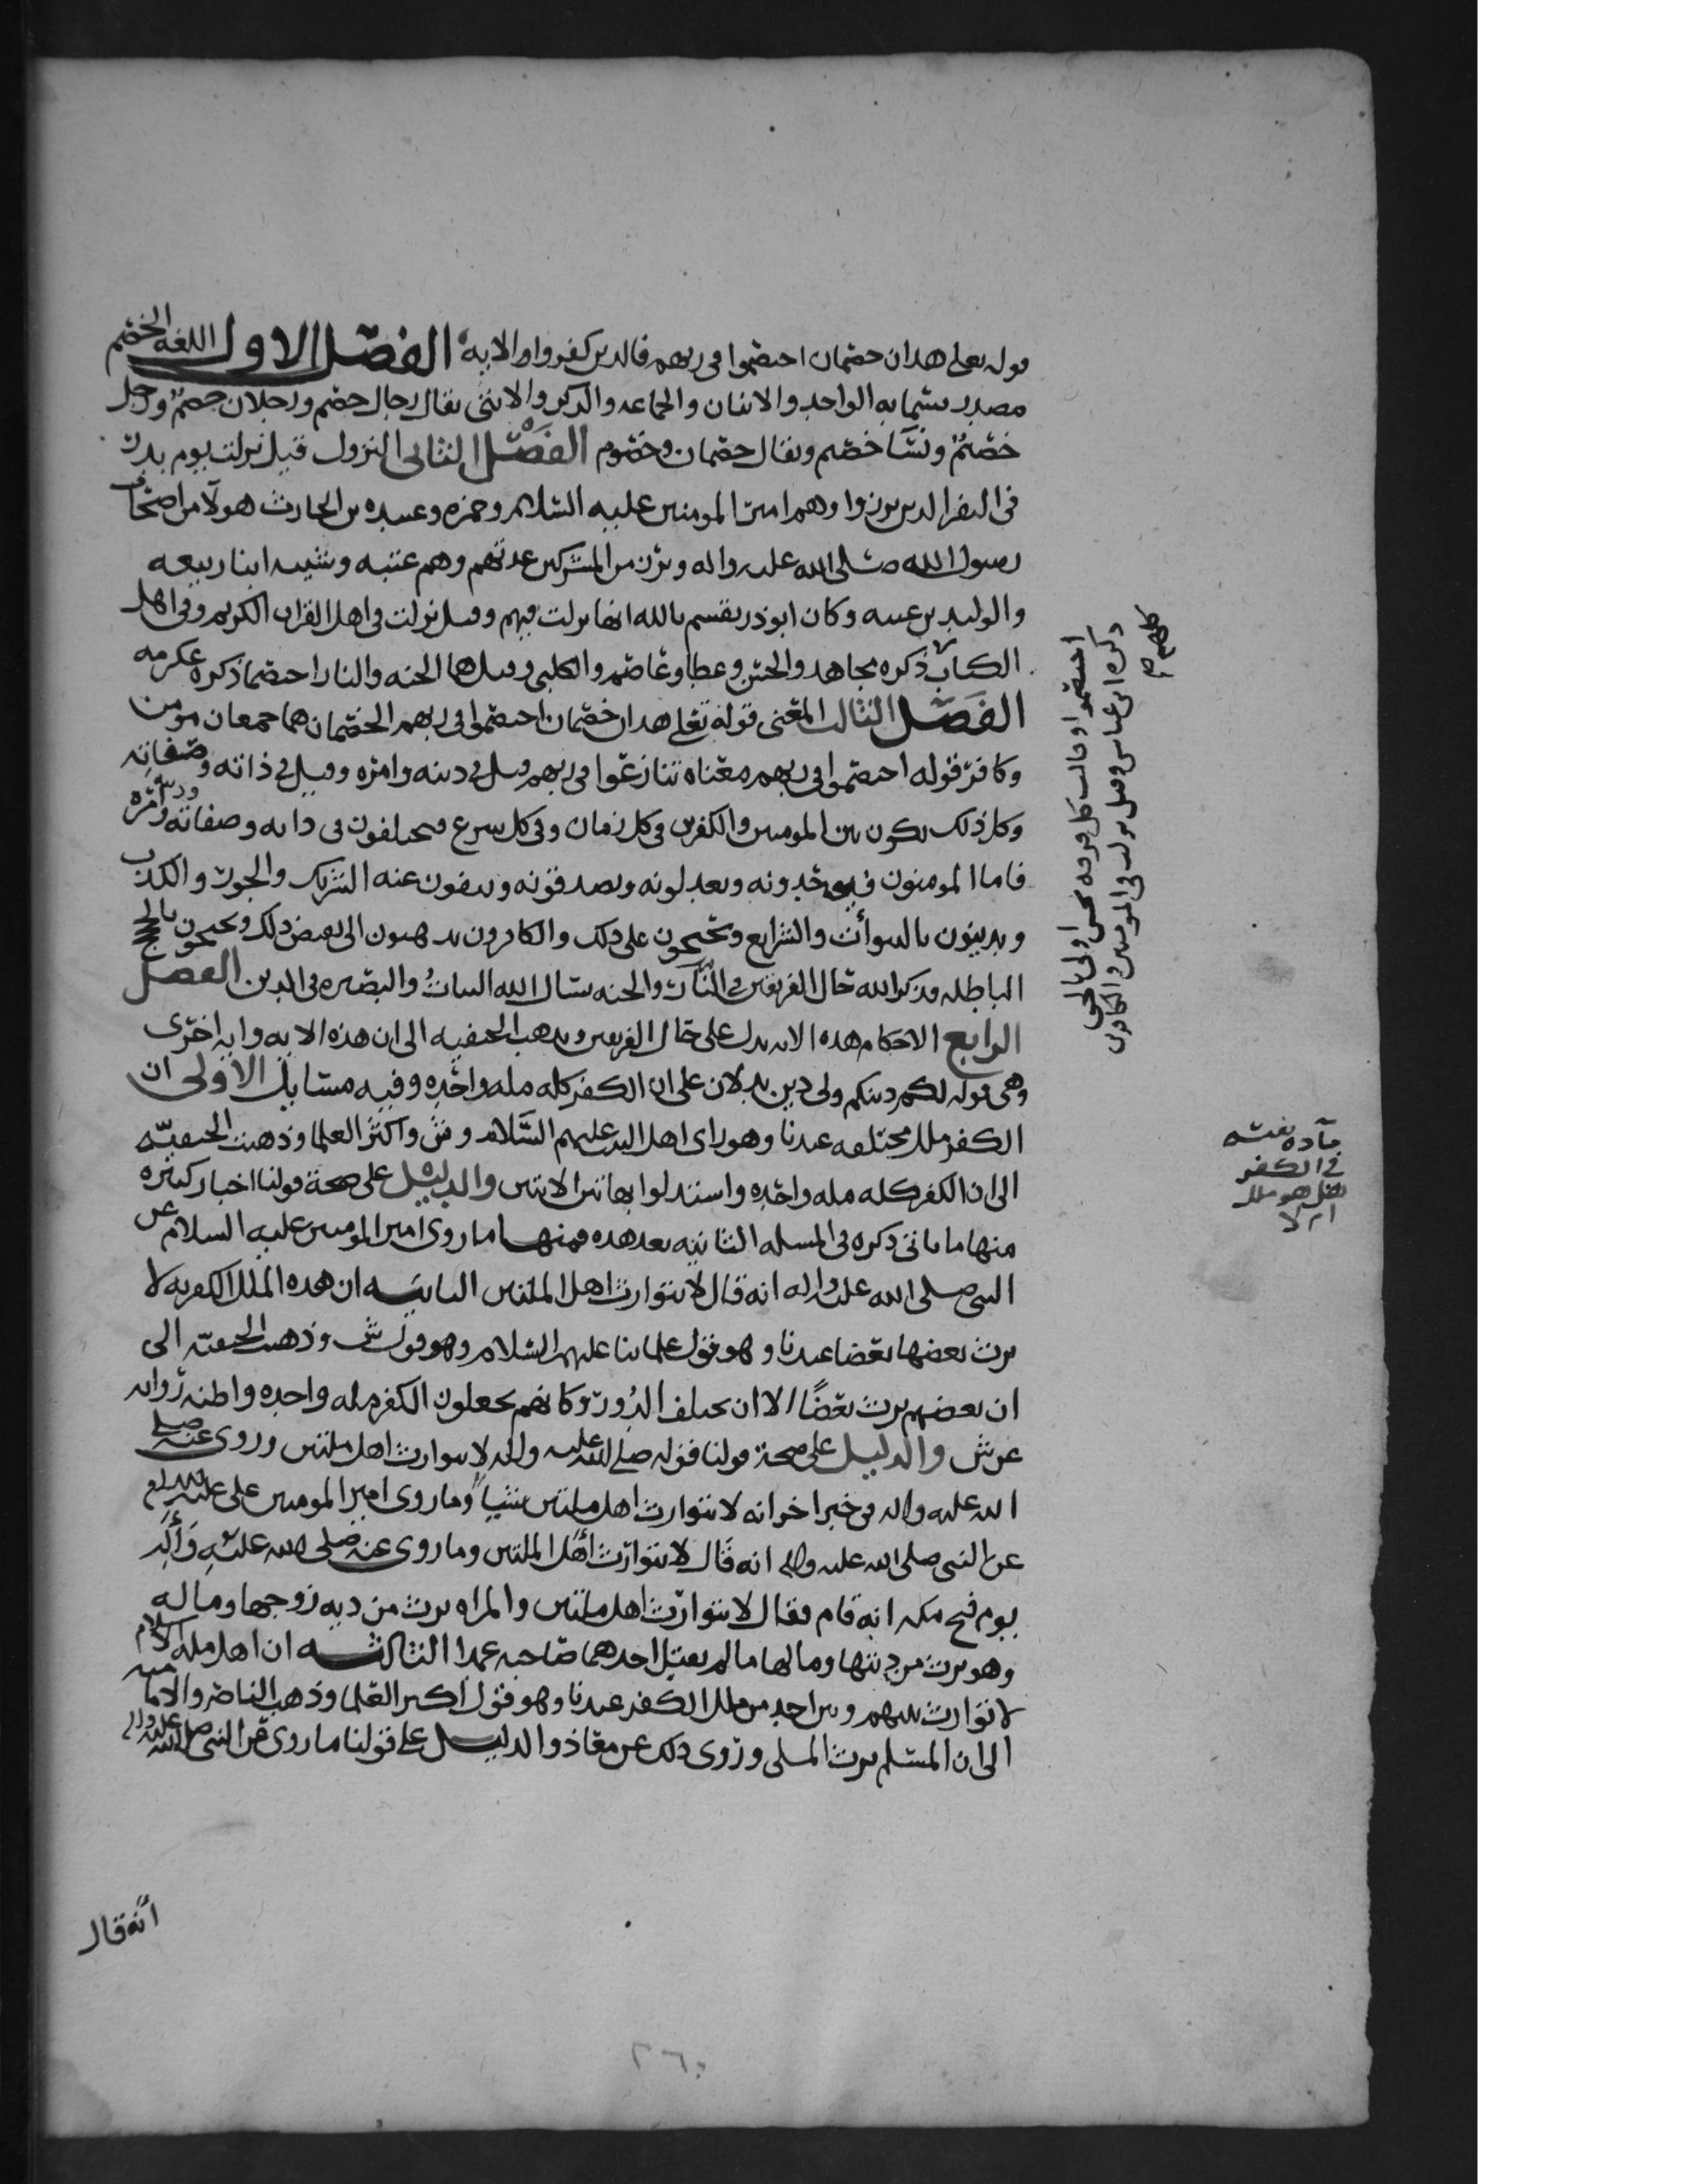 قوله تعلى هدان خصمان اختصموا في ربهم فالدين كفروا الايه الفصل الاول اللغه الخصم
مصدر يسما به الواحد والاثنان والجماعه والذكر والانثى يقال رجال خصم ورجلان خصم ورجل
خصم ونسا خصم ويقال خصمان وخصوم الفصل الثاني النزول قيل نزلت يوم بدر
في النفر الدين برزوا وهم امير المومنين عليه السلام وحمزه وعبيده بن الحارث هولا من اصحاب
رسول الله صلى الله عليه واله وبرز من المشركين عدتهم وهم عتبه وشيبه ابنا ربيعه
والوليد بن عتبه وكان ابوذر يقسم بالله انها نزلت فيهم وقيل نزلت في اهل القران الكريم وفي اهل
الكتاب ذكره مجاهد والحسن وعطا وعاصم والكلبي وقيل هما الجنه والنار اختصما ذكره عكرمه
الفصل الثالث المعنى قوله تعلى هدان خصمان اختصموا في ربهم الخصمان هما جمعان مومن
وكافر قوله اختصموا في ربهم معناه تنازعوا في ربهم قيل في دينه وامره وقيل في ذاته وصفاته
وكل ذلك يكون بين المومنين والكفرين في كل زمان وفي كل شرع فيختلفون في ذاته وصفاته ودينه وامره
فاما المومنون فيوحدونه ويعدلونه ويصدقونه وينفون عنه الشريك والجور والكذب
ويدينون بالنبوات والشرايع ويحتجون على ذلك والكافرون يذهبون الى بعض ذلك ويحتجون بالحجج
الباطله فذكر الله حال الفريقين في النار والجنه نسال الله الثبات والبصيره في الدين الفصل
الرابع الاحكام هده الايه يدل على حال الفريقين ويذهب الحنفيه الى ان هذه الايه وايه اخرى
وهي قوله لكم دينكم ولي دين يدلان على ان الكفر كله مله واحده وفيه مسايل الاولى ان
الكفر ملل مختلفه عندنا وهو راى اهل البيت عليهم السلام وش واكثر العلما وذهبت الحنفيه
الى ان الكفر كله مله واحده واستدلوا بهاتين الايتين والدليل على صحة قولنا اخبار كثيره
منها ما ياتي ذكره في المسله الثانيه بعد هده فمنها ما روى امير المومنين عليه السلام عن
النبي صلى الله عليه واله انه قال لا يتوارث اهل الملتين الثانيه ان هده الملل الكفريه لا
يرث بعضها بعضا عندنا وهو قول علمائنا عليهم السلام وهو قول ش وذهبت الحنفيه الى
ان بعضهم يرث بعضا الا ان يختلف الدور وكانهم يجعلون الكفر مله واحده واظنه روايه
عن ش والدليل على صحة قولنا قوله صلى الله عليه واله لا يتوارث اهل ملتين وروى عنه صلى
الله عليه واله في خبر اخر انه لا يتوارث اهل ملتين شيا وما روى امير المومنين على عليه السلام
عن النبي صلى الله عليه واله انه قال لا يتوارث اهل الملتين وما روى عنه صلى الله عليه واله
يوم فتح مكه انه قام فقال لا يتوارث اهل ملتين والمراه يرث من ديه زوجها وماله
وهو يرث من ديتها ومالها ما لم يقتل احدهما صاحبه عمدا الثالثه ان اهل مله الاسلام
لا توارث بينهم وبين احد من ملل الكفر عندنا وهو قول اكثر العلما وذهب الناصر والاماميه
الى ان المسلم يرث الملى وروى ذلك عن معاذ والدليل على قولنا ما روى عن النبي صلى الله عليه واله
انه قال
اختصموا وقالت كل فرقه نحن اولى بالحق
ذكره ابن عباس وقيل نزلت في المومنين والكافرين
كلهم صح
في الكفر
هل هو ملل
ام لا
٢٦٠